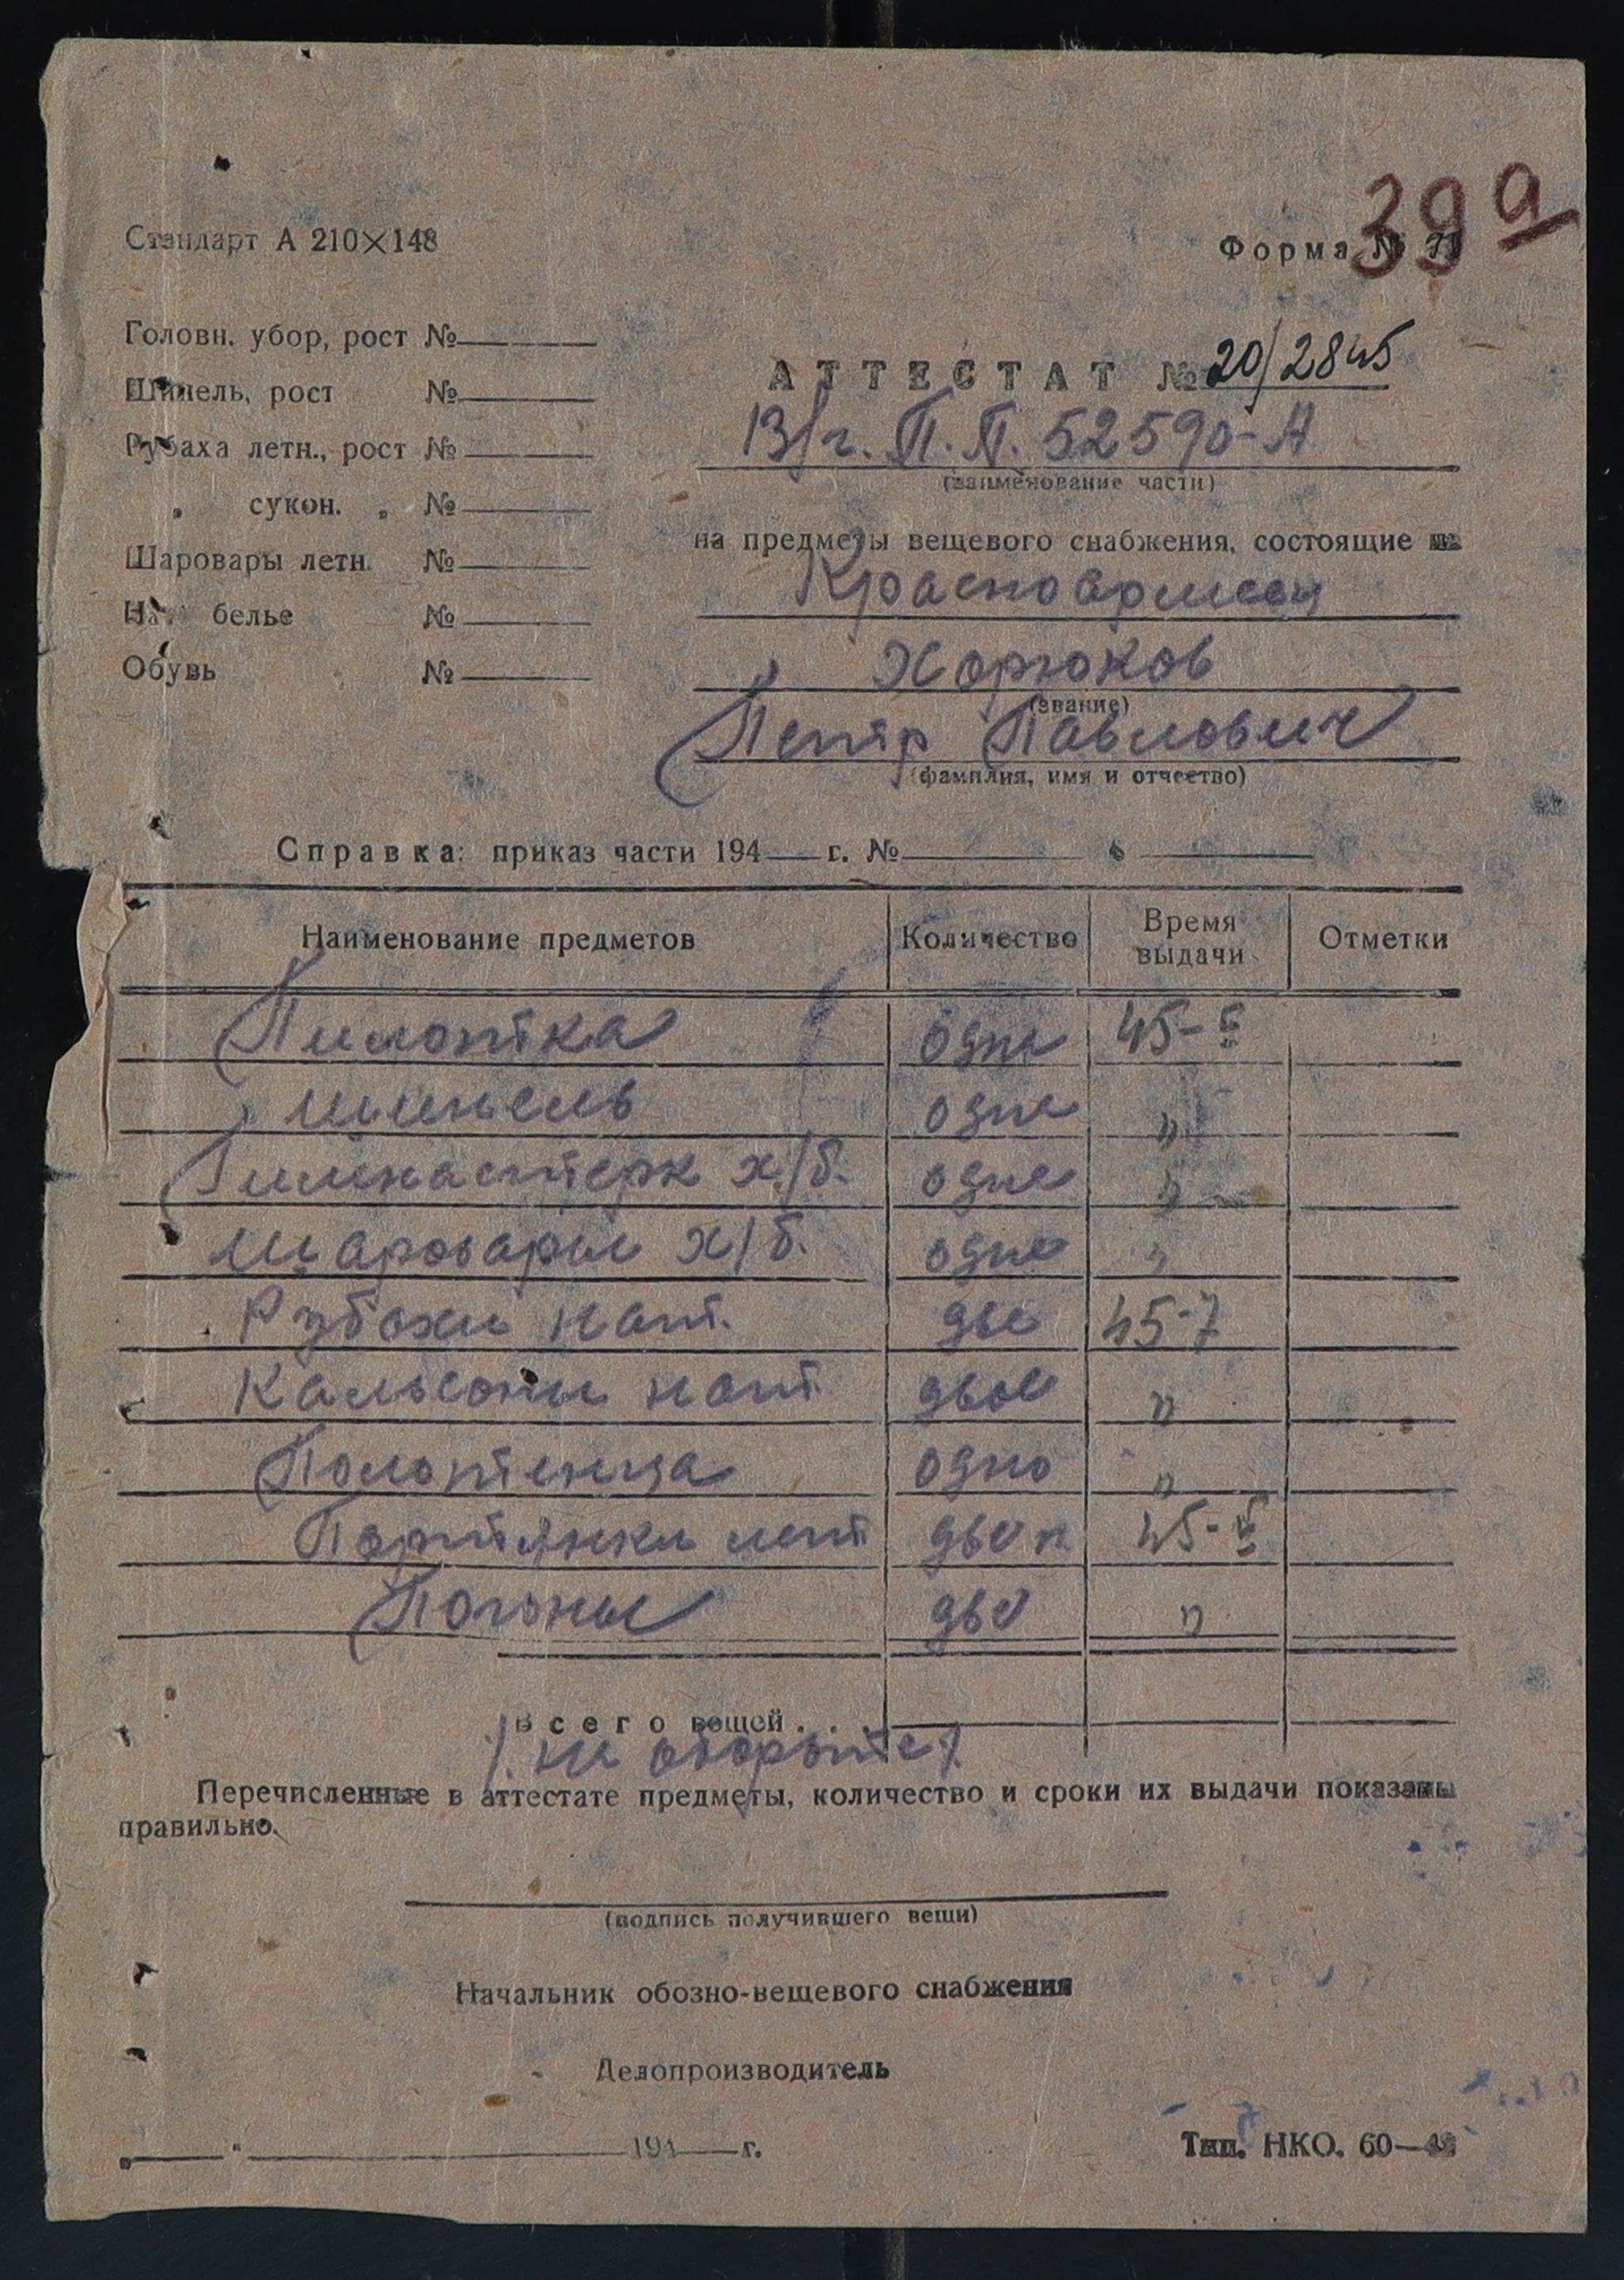 39а
Стандарт А 210×148
Форма №
Головн. убор, рост №
Шинель, рост №
Рубаха летн., рост №
„ сукон. „ №
Шаровары летн. №
Нат. белье №
Обувь №
АТТЕСТАТ № 20/2845
В/г. П.П. 52590-А
(наименование части)
на предметы вещевого снабжения, состоящие на
Красноармеец
Хорюков
(звание)
Петр Павлович
(фамилия, имя и отчество)
Справка: приказ части 194 г. №
Наименование предметов Количество Время выдачи Отметки
Пилотка одна 45-5
Шинель одна „
Гимнастерк х/б. одна „
Шаровары х/б. одне „
Рубахи нат. две 45-7
Кальсоны нат двое „
Полотенца одно „
Портянки лет 45-5
Погоны „
Всего вещей . .
/. на обороте /.
Перечисленные в аттестате предметы, количество и сроки их выдачи показаны
правильно.
(подпись получившего вещи)
Начальник обозно-вещевого снабжения
Делопроизводитель
„ “ 194 г.
Тип. НКО. 60—